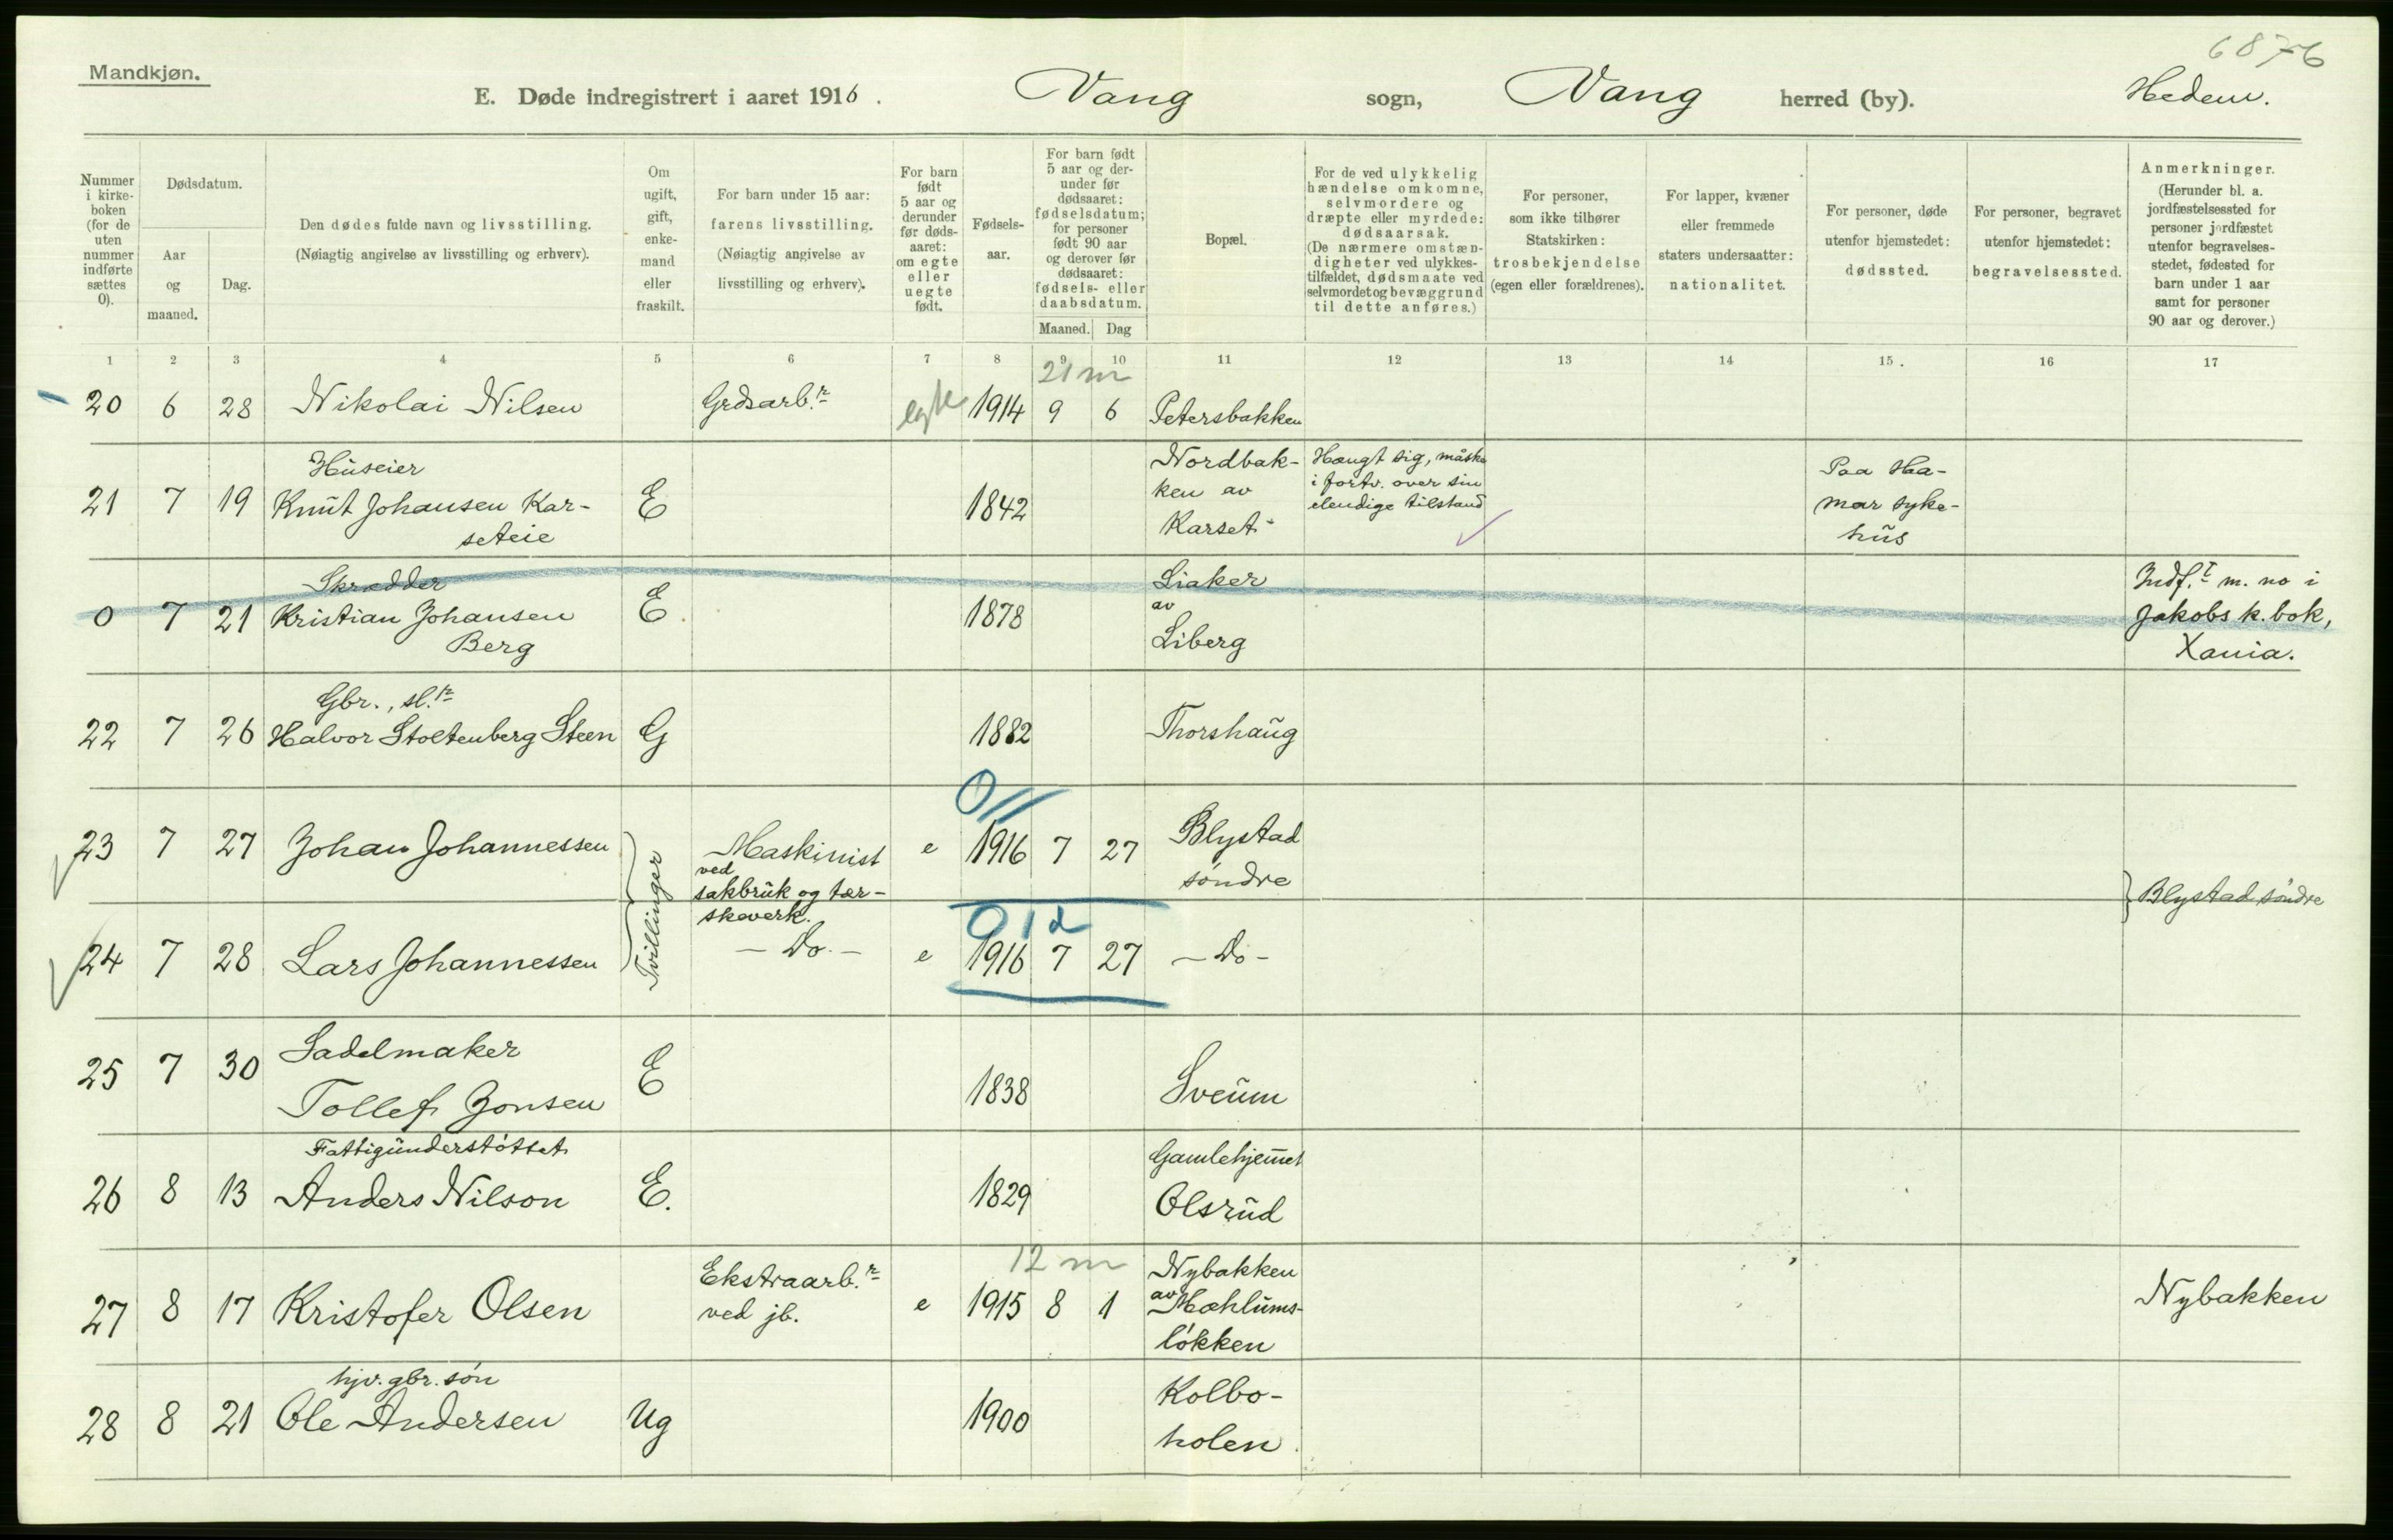 6876
Mandkjøn.
E. Døde indregistrert i aaret 1916. Vang sogn, Vang herred (by). Hedem.
Nummer i kirke-boken (for de uten nummer indførte sættes 0).
Dødsdatum.
Aar og maaned.
Dag.
Den dødes fulde navn og livsstilling. (Nøiagtig angivelse av livsstilling og erhverv).
Om ugift, gift, enke-mand eller fraskilt.
For barn under 15 aar: farens livsstilling. (Nøiagtig angivelse av livsstilling og erhverv).
For barn født 5 aar og derunder før døds-aaret: om egte eller uegte født.
Fødsels-aar.
For barn født 5 aar og der-under før dødsaaret: fødselsdatum; for personer født 90 aar og derover før dødsaaret: fødsels- eller daabsdatum.
Maaned. Dag
Bopæl.
For de ved ulykkelig hændelse omkomne, selvmordere og dræpte eller myrdede: dødsaarsak. (De nærmere omstæn-digheter ved ulykkes-tilfældet, dødsmaate ved selvmordet og bevæggrund til dette anføres.)
For personer, som ikke tilhører Statskirken: trosbekjendelse (egen eller forældrenes).
For lapper, kvæner eller fremmede staters undersaatter: nationalitet.
For personer, døde utenfor hjemstedet: dødssted.
For personer, begravet utenfor hjemstedet: begravelsessted.
Anmerkninger. (Herunder bl. a. jordfæstelsessted for personer jordfæstet utenfor begravelses-stedet, fødested for barn under 1 aar samt for personer 90 aar og derover.)
1 2 3 4 5 6 7 8 9 10 11 12 13 14 15. 16 17
21 m
20 6 28 Nikolai Nilsen Grdsarb.r egte 1914 9 6 Petersbakken
Huseier Nordbak- Hængt sig, måske Paa Ha-
21 7 19 Knut Johansen Kar- E 1842 ken av i fortv. over sin mar syke-
seteie Karset elendige tilstand hus
Skrædder Liaker Indf.t m. no i
0 7 21 Kristian Johansen E 1878 av Jakobs k. bok,
Berg Liberg Xania.
Gbr., sl.r
22 7 26 Halvor Stoltenberg Steen G 1882 Thorshaug
0//
23 7 27 Johan Johannessen Maskinist e 1916 7 27 Blystad
ved søndre
Tvillinger sakbruk og tær- Blystad søndre
skeverk. 0 1 d
24 7 28 Lars Johannessen - Do. - e 1916 7 27 - Do -
Sadelmaker
25 7 30 Tollef Jonsen E 1838 Sveum
Fattigunderstøttet Gamlehjemet
26 8 13 Anders Nilson E. 1829 Olsrud
12 m
Ekstraarb.r Nybakken
27 8 17 Kristofer Olsen ved jb. e 1915 8 1 av Mæhlums- Nybakken
løkken
hjv. gbr. søn Kolbo-
28 8 21 Ole Andersen Ug 1900 holen